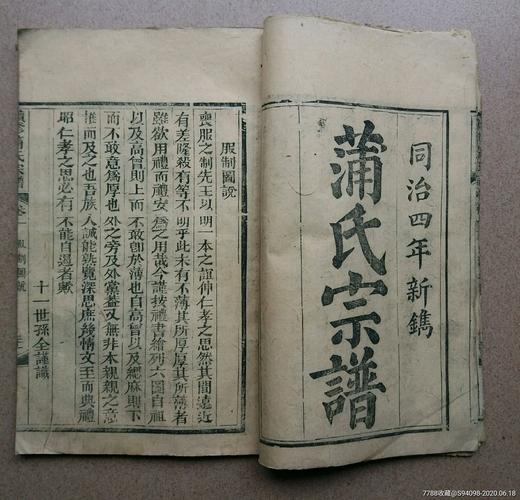 同治四年新鐫
蒲氏宗譜
服制圖說
喪服之制先王以明一本之誼伸仁孝之思然其間遠近
有差隆殺有等不明乎此未有不薄其所厚厚其所薄者
雖欲用禮而禮安為之用哉今謹按禮書繪列六圖自祖
以及高曾則上而不敢卸於薄也自高曾以及緦麻則下
而不敢意為厚也外之旁及外黨蓋又無非本親親之意
推而及之也吾族人誠能熟覽深思庶幾情文至而典禮
昭仁孝之思必有不能自遏者歟
十一世孫全謹識
服制圖說
7788收藏@S94098-2020.06.18